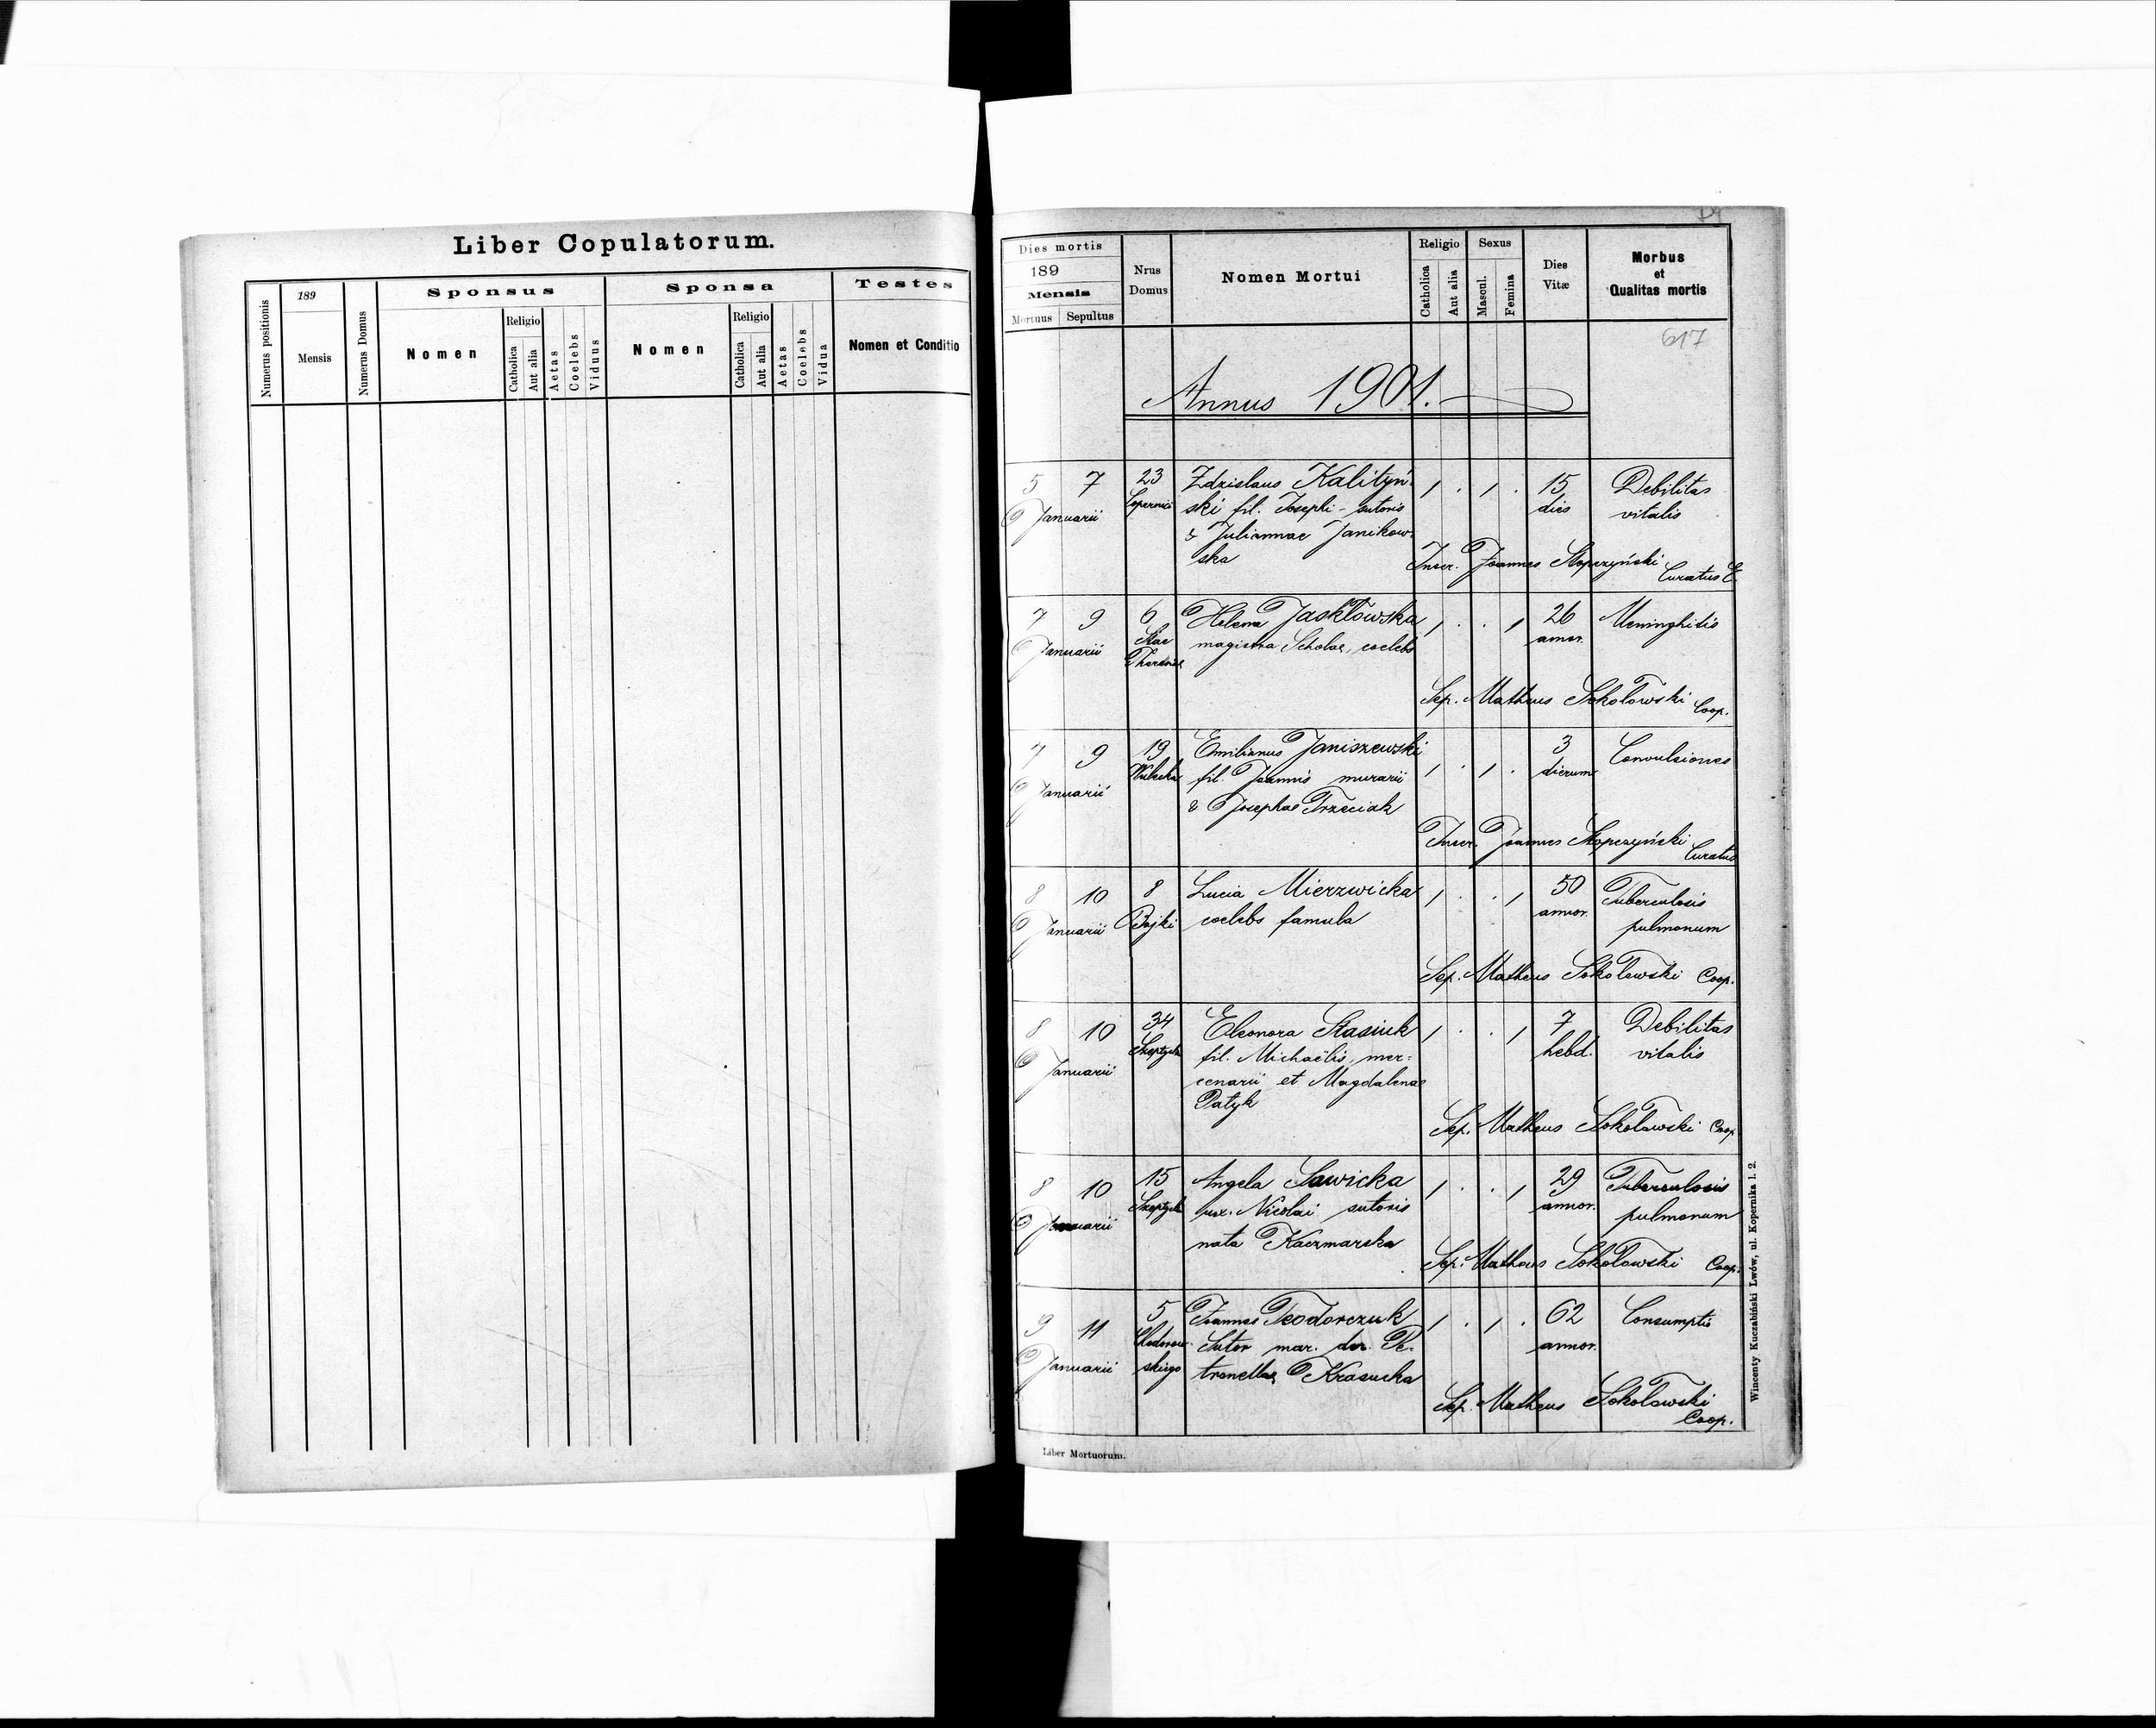 Liber Copulatorum.
Numerus positionis
189
Mensis
Numerus Domus
Sponsus
Nomen
Religio
Catholica
Aut alia
Aetas
Coelebs
Viduus
Sponsa
Nomen
Religio
Catholica
Aut alia
Aetas
Coelebs
Vidua
Testes
Nomen et Conditio
Dies mortis
189
Mensis
Mortuus Sepultus
Nrus
Domus
Nomen Mortui
Religio
Catholica
Aut alia
Sexus
Mascul.
Femina
Dies
Vitæ
Morbus
et
Qualitas mortis
617
Annus 1901.
5 7 23 Zdzislaus Kalityń- 1 . 1 . 15 Debilitas
Januarii ski fil. Josephi - sutoris dies vitalis
& Juliannae Janikow-
ska
Inscr. Joannes Curatus E.
7 9 6 Helena Jaskłowska 1 . . 1 26 Meninghitis
Januarii magistra Scholae, coelebs annor.
Sep. Matheus Sokołowski Coop.
7 9 19 Emilianus Janiszewski 1 . 1 . 3 Convulsiones
Januarii Wulecka fil. Joannis murarii dierum
& Josephae Trzeciak
Inscr. Joannes Curatus
8 10 8 Lucia Mierzwicka 1 . . 1 50 Tuberculosis
Januarii Bajki coelebs famula annor. pulmonum
Sep. Matheus Sokołowski Coop.
8 10 34 Eleonora Stasiuk 1 . . 1 7 Debilitas
Januarii Szeptyck fil. Michaëlis, mer= hebd. vitalis
cenarii et Magdalenae
Patyk
Sep. Matheus Sokołowski Coop.
8 10 15 Angela Sawicka 1 . . 1 29 Tuberculosis
Januarii Szeptyck ux. Nicolai sutoris annor. pulmonum
nata Kaczmarska
Sep. Matheus Sokołowski Coop.
9 11 5 Joannes Teodorczuk 1 . 1 . 62 Consumptio
Januarii Chodorow- Sutor mar. der. Pe-
skiego tronellae Krasucka annor.
Sep. Matheus Sokołowski
Coop.
Liber Mortuorum.
Wincenty Kuczabiński Lwów, ul. Kopernika l. 2.